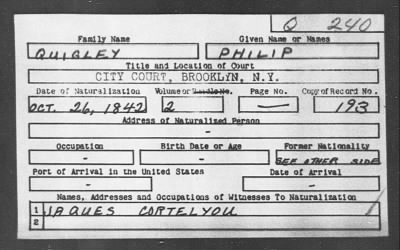 Q 240
Family Name Given Name or Names
QUIGLEY PHILIP
Title and Location of Court
CITY COURT, BROOKLYN, N.Y.
Date of Naturalization Volume or Bundle No. Page No. Copy of Record No.
OCT. 26, 1842 2 — 193
Address of Naturalized Person
-
Occupation Birth Date or Age Former Nationality
- - SEE OTHER SIDE
Port of Arrival in the United States Date of Arrival
- -
Names, Addresses and Occupations of Witnesses To Naturalization
1 JAQUES CORTELYOU
2